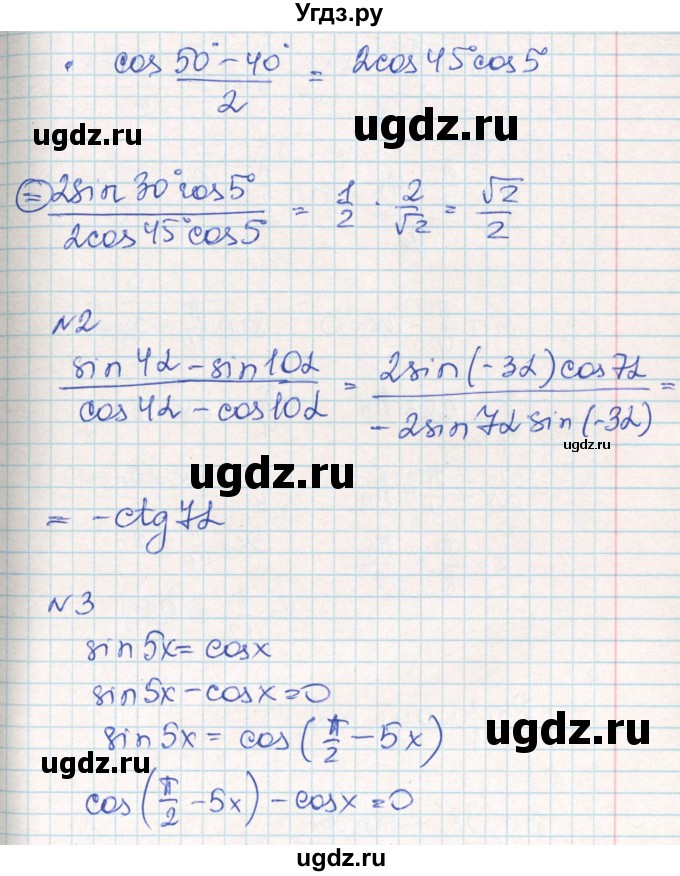 Угдз.ру
· cos (50° - 40°)/2 = 2cos45°cos5°
ugdz.ru ugdz.ru
= 2sin30°cos5° / 2cos45°cos5° = 1/2 · 2/√2 = √2/2
N2
sin4α - sin10α / cos4α - cos10α = 2sin(-3α)cos7α / -2sin7α sin(-3α) =
ugdz.ru
ugdz.ru
= -ctg7α
N3
sin5x = cosx
sin5x - cosx = 0
sin5x = cos(π/2 - 5x)
ugdz.ru
ugdz.ru
cos(π/2 - 5x) - cosx = 0
ugdz.ru